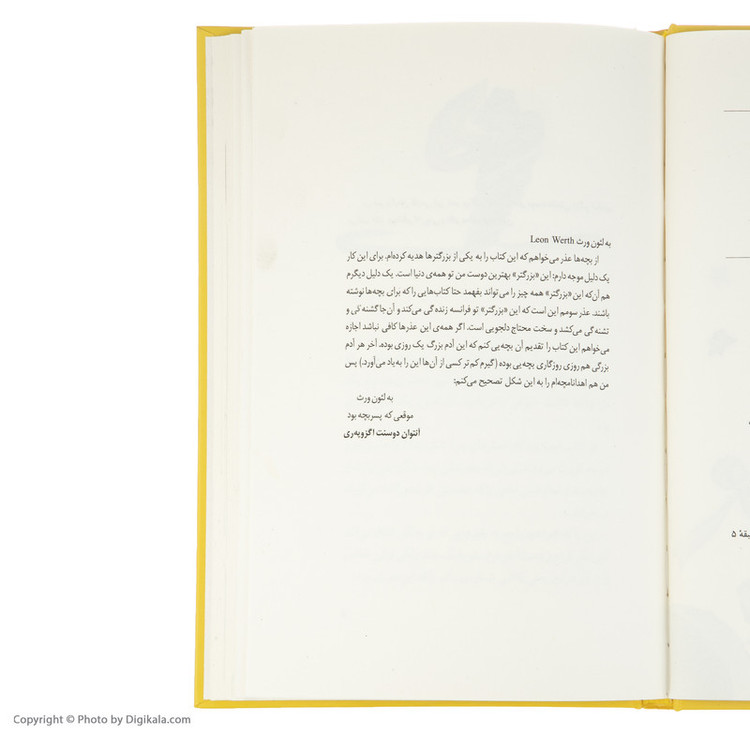 به لئون ورث Leon Werth
از بچه‌ها عذر می‌خواهم که این کتاب را به یکی از بزرگترها هدیه کرده‌ام. برای این کار
یک دلیل موجه دارم: این «بزرگتر» بهترین دوست من تو همه‌ی دنیا است. یک دلیل دیگرم
هم آن‌که این «بزرگتر» همه چیز را می‌تواند بفهمد حتا کتاب‌هایی را که برای بچه‌ها نوشته
باشند. عذر سومم این است که این «بزرگتر» تو فرانسه زنده‌گی می‌کند و آن‌جا گشنه‌گی و
تشنه‌گی می‌کشد و سخت محتاج دلجویی است. اگر همه‌ی این عذرها کافی نباشد اجازه
می‌خواهم این کتاب را تقدیم آن بچه‌یی کنم که این آدم بزرگ یک روزی بوده. آخر هر آدم
بزرگی هم روزی روزگاری بچه‌یی بوده (گیرم کم‌تر کسی از آن‌ها این را به‌یاد می‌آورد.) پس
من هم اهدانامچه‌ام را به این شکل تصحیح می‌کنم:
به لئون ورث
موقعی که پسربچه بود
آنتوان دوسنت اگزوپه‌ری
۵
Copyright © Photo by Digikala.com